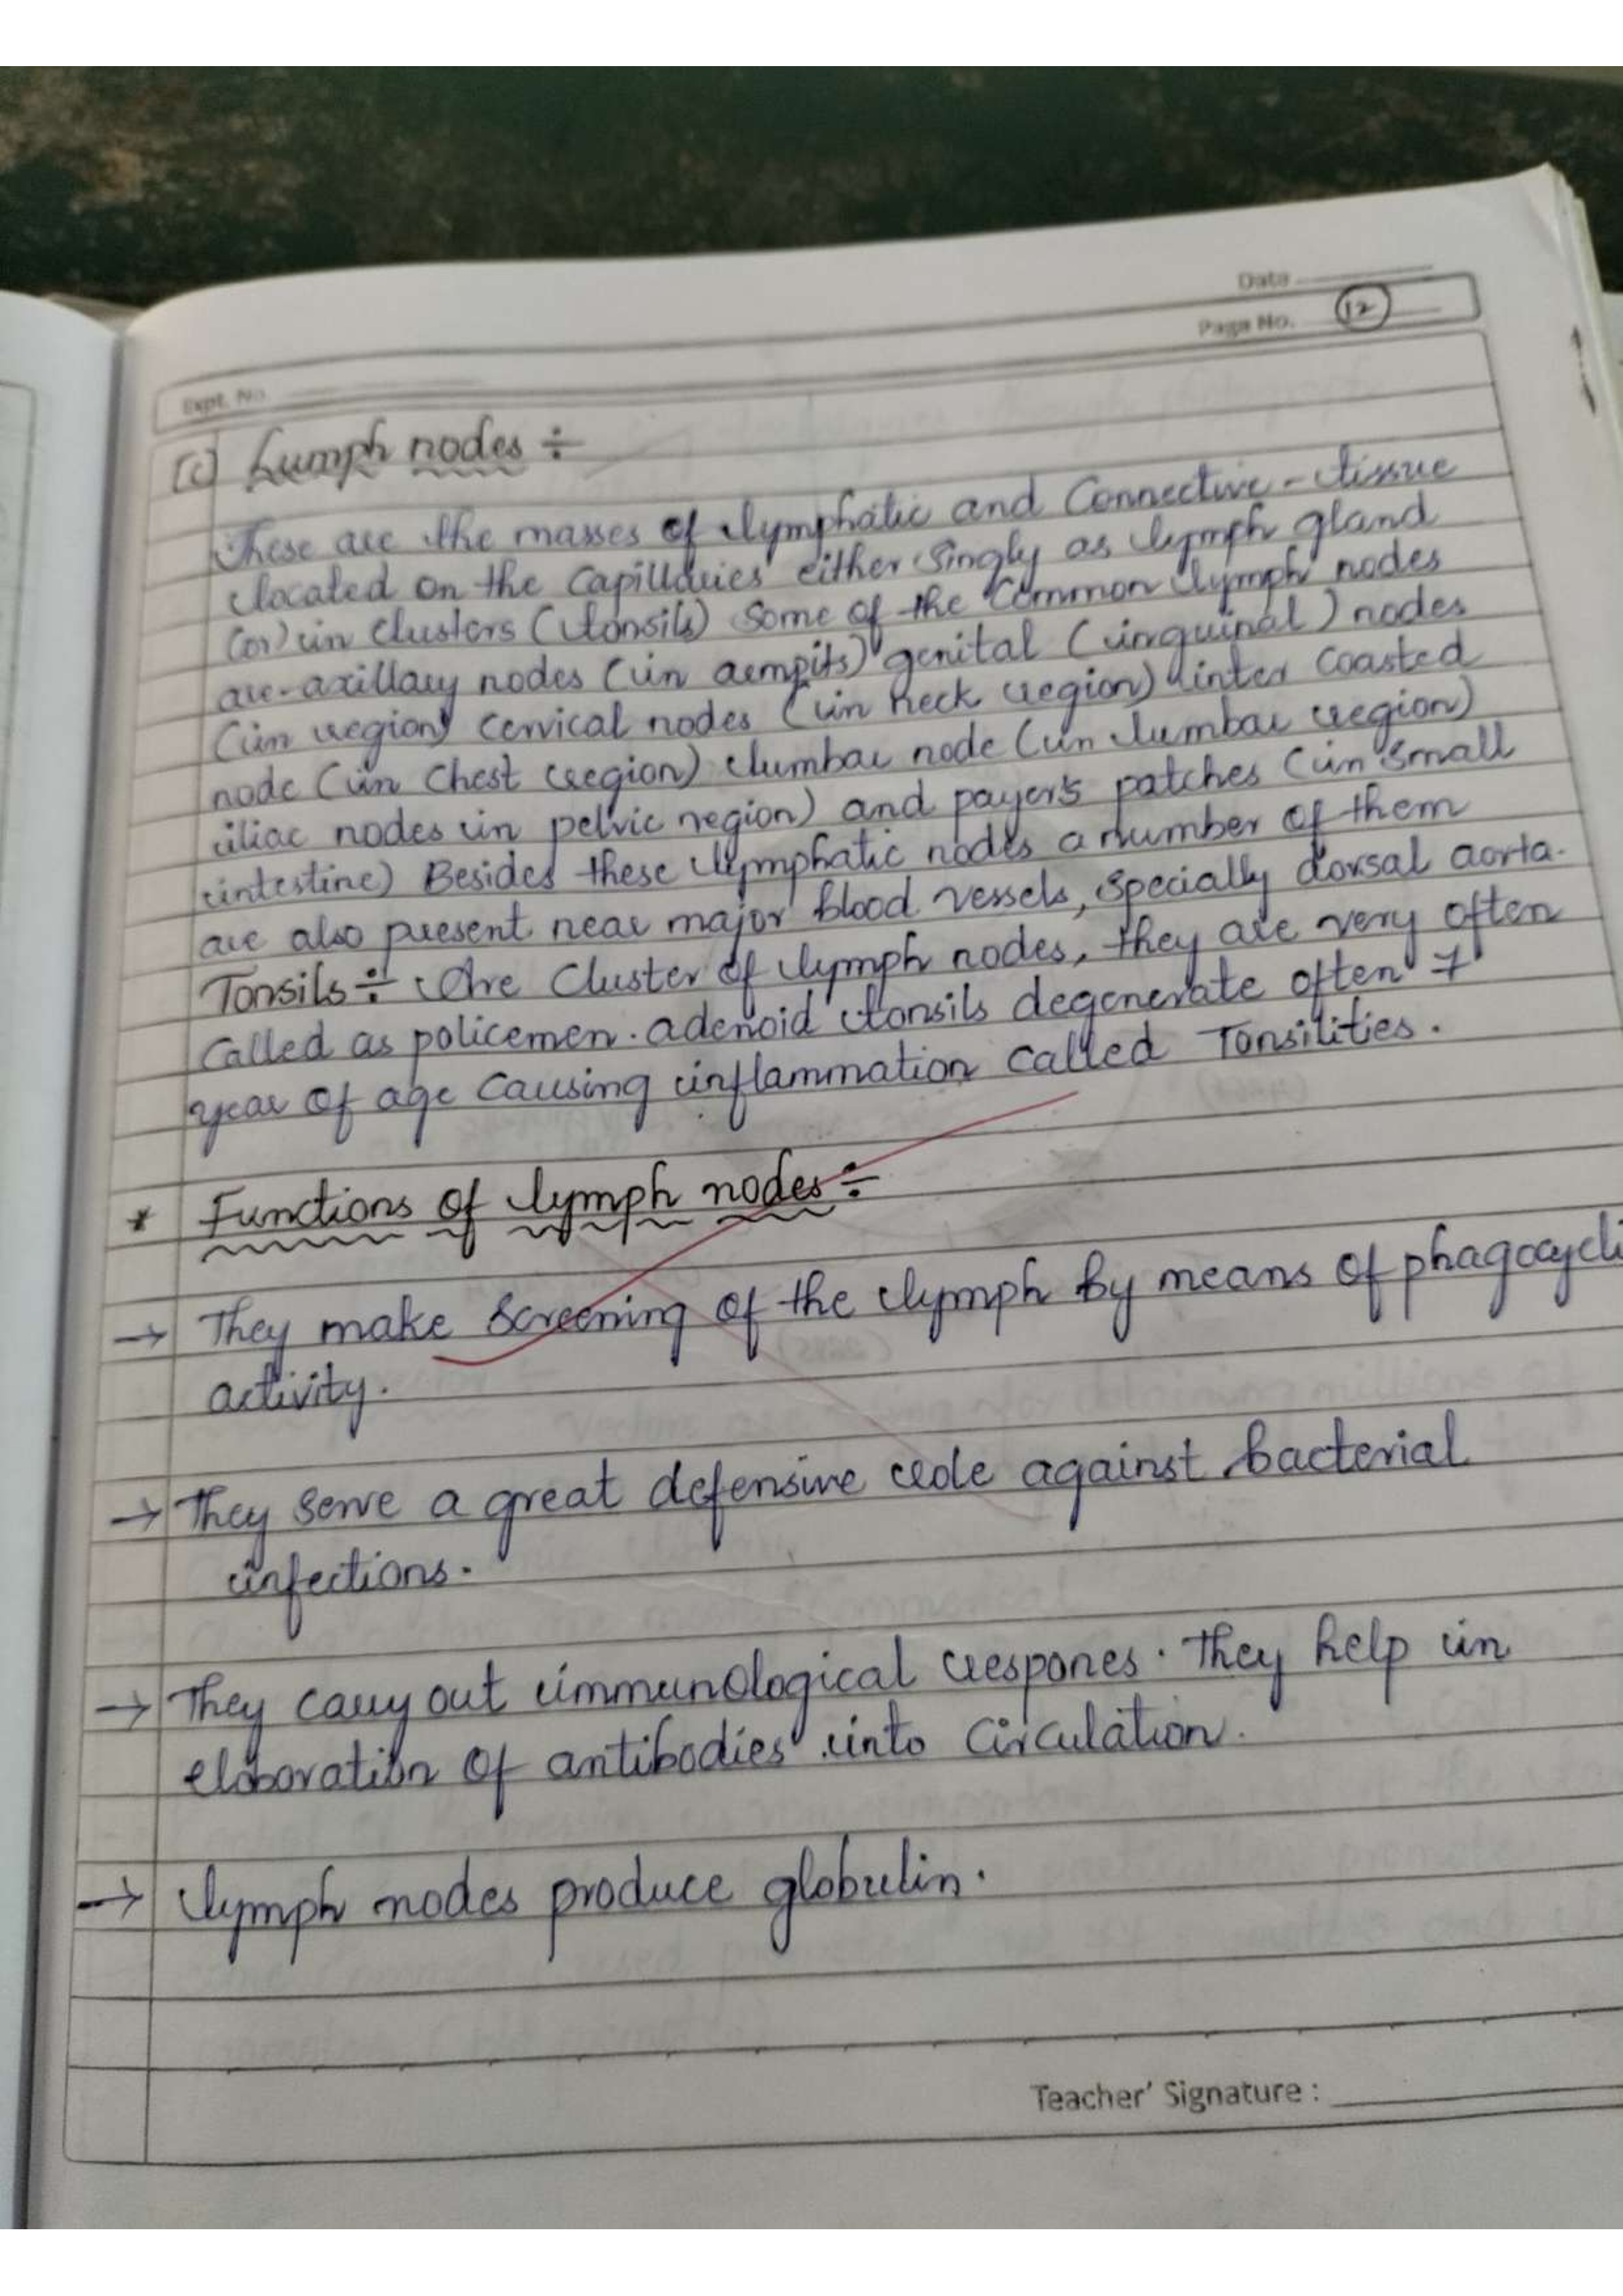 Date
Page No. 12
Expt. No.
[c] Lumph nodes ÷
These are the masses of lymphatic and Connective - tissue
located on the capillaries either singly as lymph gland
(or) in clusters (tonsils) Some of the Common lymph nodes
are-axillary nodes (in armpits) genital (inguinal) nodes
(in region) cervical nodes (in neck region) inter coasted
node (in chest region) lumbar node (in lumbar region)
iliac nodes in pelvic region) and payer's patches (in small
intestine) Besides these lymphatic nodes a number of them
are also present near major blood vessels, specially dorsal aorta.
Tonsils ÷ Are Cluster of lymph nodes, they are very often
Called as policemen. adenoid tonsils degenerate often 7
year of age causing inflammation called Tonsilities.
* Functions of lymph nodes ÷
→ They make screening of the lymph by means of phagocycli
activity.
→ They serve a great defensive role against bacterial
infections.
→ They carry out immunological respones. They help in
elaboration of antibodies into circulation.
→ lymph nodes produce globulin.
Teacher' Signature :